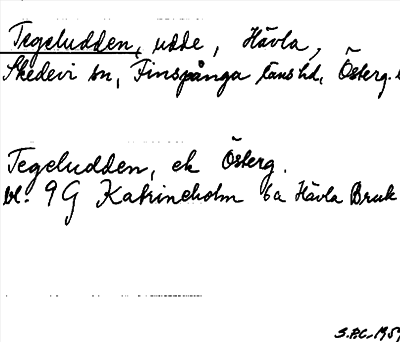 Tegeludden, udde, Hävla,
Skedevi sn, Finspånga länshd, Österg.
Tegeludden, ek Österg.
bl. 9G Katrineholm 6a Hävla Bruk